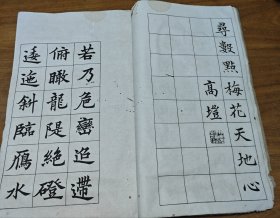 尋數點梅花天地心
高塏
若乃危巒迢遰
俯瞰龍隄絕磴
逶迤斜臨鴈水